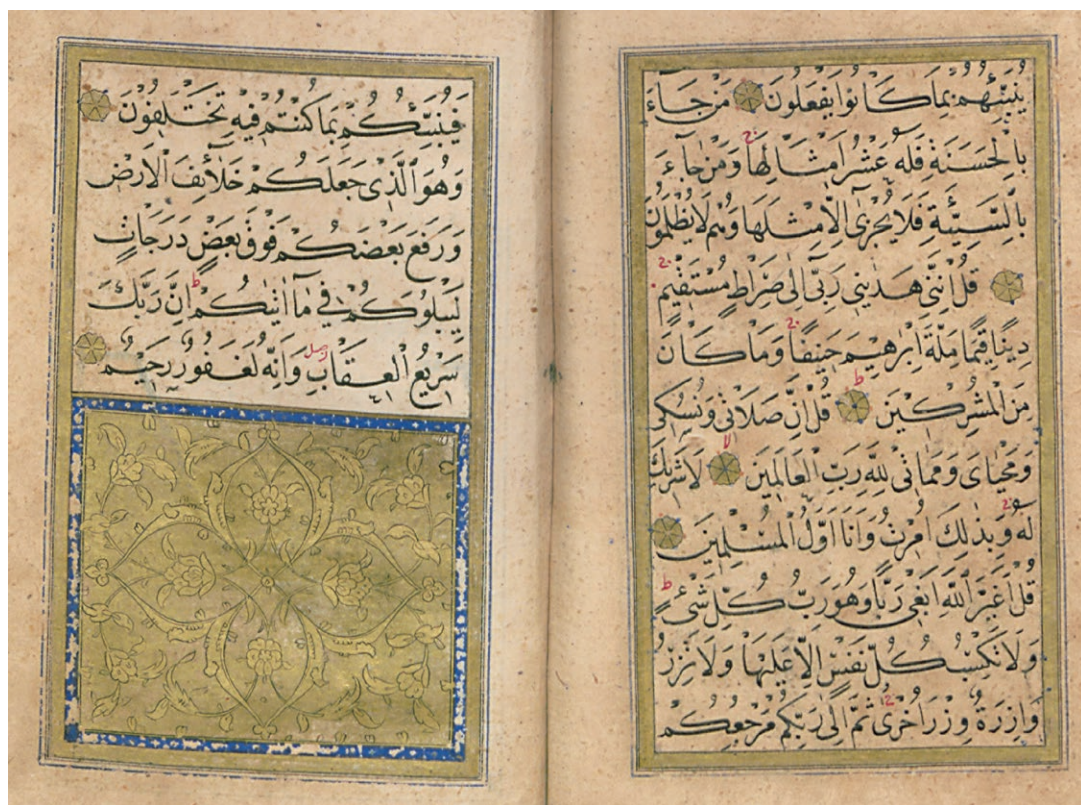 يُنَبِّئُهُمْ بِمَا كَانُوا يَفْعَلُونَ مَنْ جَاءَ
بِالْحَسَنَةِ فَلَهُ عَشْرُ اَمْثَالِهَا ۚ وَمَنْ جَاءَ
بِالسَّيِّئَةِ فَلَا يُجْزٰى اِلَّا مِثْلَهَا وَهُمْ لَا يُظْلَمُونَ
قُلْ اِنَّنِى هَدٰينِى رَبِّى اِلٰى صِرَاطٍ مُسْتَقِيمٍ ۚ
دِينًا قِيَمًا مِلَّةَ اِبْرٰهِيمَ حَنِيفًا ۚ وَمَا كَانَ
مِنَ الْمُشْرِكِينَ ط قُلْ اِنَّ صَلَاتِى وَنُسُكِى
وَمَحْيَاىَ وَمَمَاتِى لِلّٰهِ رَبِّ الْعَالَمِينَ لا لَا شَرِيكَ
لَهُ ۚ وَبِذٰلِكَ اُمِرْتُ وَاَنَا اَوَّلُ الْمُسْلِمِينَ
قُلْ اَغَيْرَ اللّٰهِ اَبْغِى رَبًّا وَهُوَ رَبُّ كُلِّ شَىْءٍ ط
وَلَا تَكْسِبُ كُلُّ نَفْسٍ اِلَّا عَلَيْهَا وَلَا تَزِرُ
وَازِرَةٌ وِزْرَ اُخْرٰى ۚ ثُمَّ اِلٰى رَبِّكُمْ مَرْجِعُكُمْ
فَيُنَبِّئُكُمْ بِمَا كُنْتُمْ فِيهِ تَخْتَلِفُونَ
وَهُوَ الَّذِى جَعَلَكُمْ خَلَائِفَ الْاَرْضِ
وَرَفَعَ بَعْضَكُمْ فَوْقَ بَعْضٍ دَرَجَاتٍ
لِيَبْلُوَكُمْ فِى مَا اٰتٰيكُمْ ط اِنَّ رَبَّكَ
سَرِيعُ الْعِقَابِ صلى وَاِنَّهُ لَغَفُورٌ رَحِيمٌ